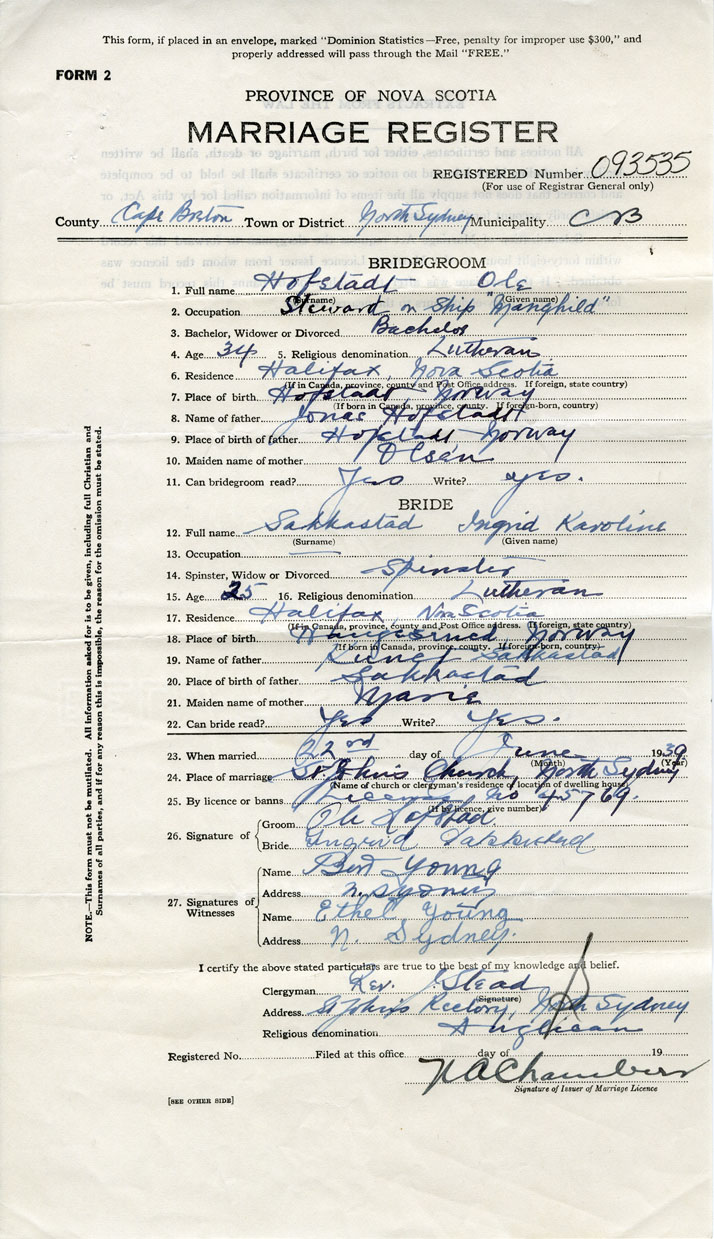 This form, if placed in an envelope, marked "Dominion Statistics—Free, penalty for improper use $300," and
properly addressed will pass through the Mail "FREE."
FORM 2
PROVINCE OF NOVA SCOTIA
MARRIAGE REGISTER
REGISTERED Number 093535
(For use of Registrar General only)
County Cape Breton Town or District North Sydney Municipality CB
BRIDEGROOM
1. Full name Hofstadt Ole
(Surname) (Given name)
2. Occupation Steward on Ship "Manghild"
3. Bachelor, Widower or Divorced Bachelor
4. Age 34 5. Religious denomination Lutheran
6. Residence Halifax, Nova Scotia
(If in Canada, province, county and Post Office address. If foreign, state country)
7. Place of birth Hofstadt Norway
(If born in Canada, province, county. If foreign-born, country)
8. Name of father Jonas Hofstadt
9. Place of birth of father Hofstadt Norway
10. Maiden name of mother Olsen
11. Can bridegroom read? Yes Write? yes.
BRIDE
12. Full name Sakkastad Ingrid Karoline
(Surname) (Given name)
13. Occupation —
14. Spinster, Widow or Divorced Spinster
15. Age 25 16. Religious denomination Lutheran
17. Residence Halifax, Nova Scotia
(If in Canada, province, county and Post Office address. If foreign, state country)
18. Place of birth Norway
(If born in Canada, province, county. If foreign-born, country)
19. Name of father Sakkastad
20. Place of birth of father Sakkastad
21. Maiden name of mother Marie
22. Can bride read? Yes Write? Yes.
23. When married 22nd day of June 1939
(Month) (Year)
24. Place of marriage St. John's Church, North Sydney
(Name of church or clergyman's residence or location of dwelling house)
25. By licence or banns License No 45769.
(If by licence, give number)
26. Signature of Groom Ole Hofstad
Bride Ingrid
27. Signatures of Witnesses Name Bert Young
Address N. Sydney
Name Ethel Young
Address N. Sydney.
I certify the above stated particulars are true to the best of my knowledge and belief.
Clergyman Rev. J. Stead
(Signature)
Address St John's Rectory, North Sydney
Religious denomination Anglican
Registered No. Filed at this office day of 19
N A Chambers
Signature of Issuer of Marriage Licence
[SEE OTHER SIDE]
NOTE.—This form must not be mutilated. All information asked for is to be given, including full Christian and
Surnames of all parties, and if for any reason this is impossible, the reason for the omission must be stated.